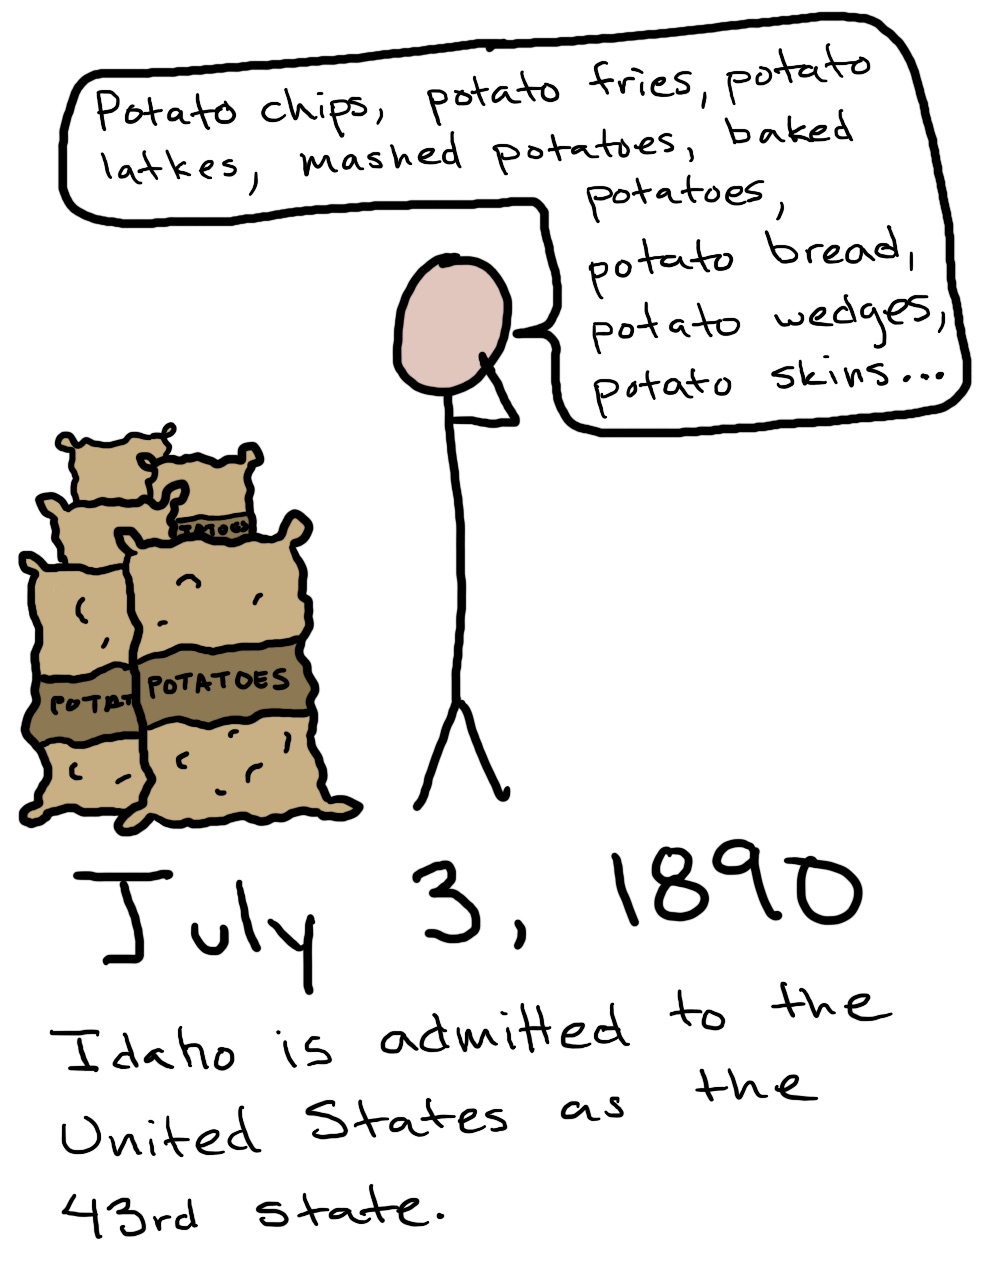 Potato chips, potato fries, potato
latkes, mashed potatoes, baked
potatoes,
potato bread,
potato wedges,
potato skins...
TATOES
POTAT
POTATOES
July 3, 1890
Idaho is admitted to the
United States as the
43rd state.